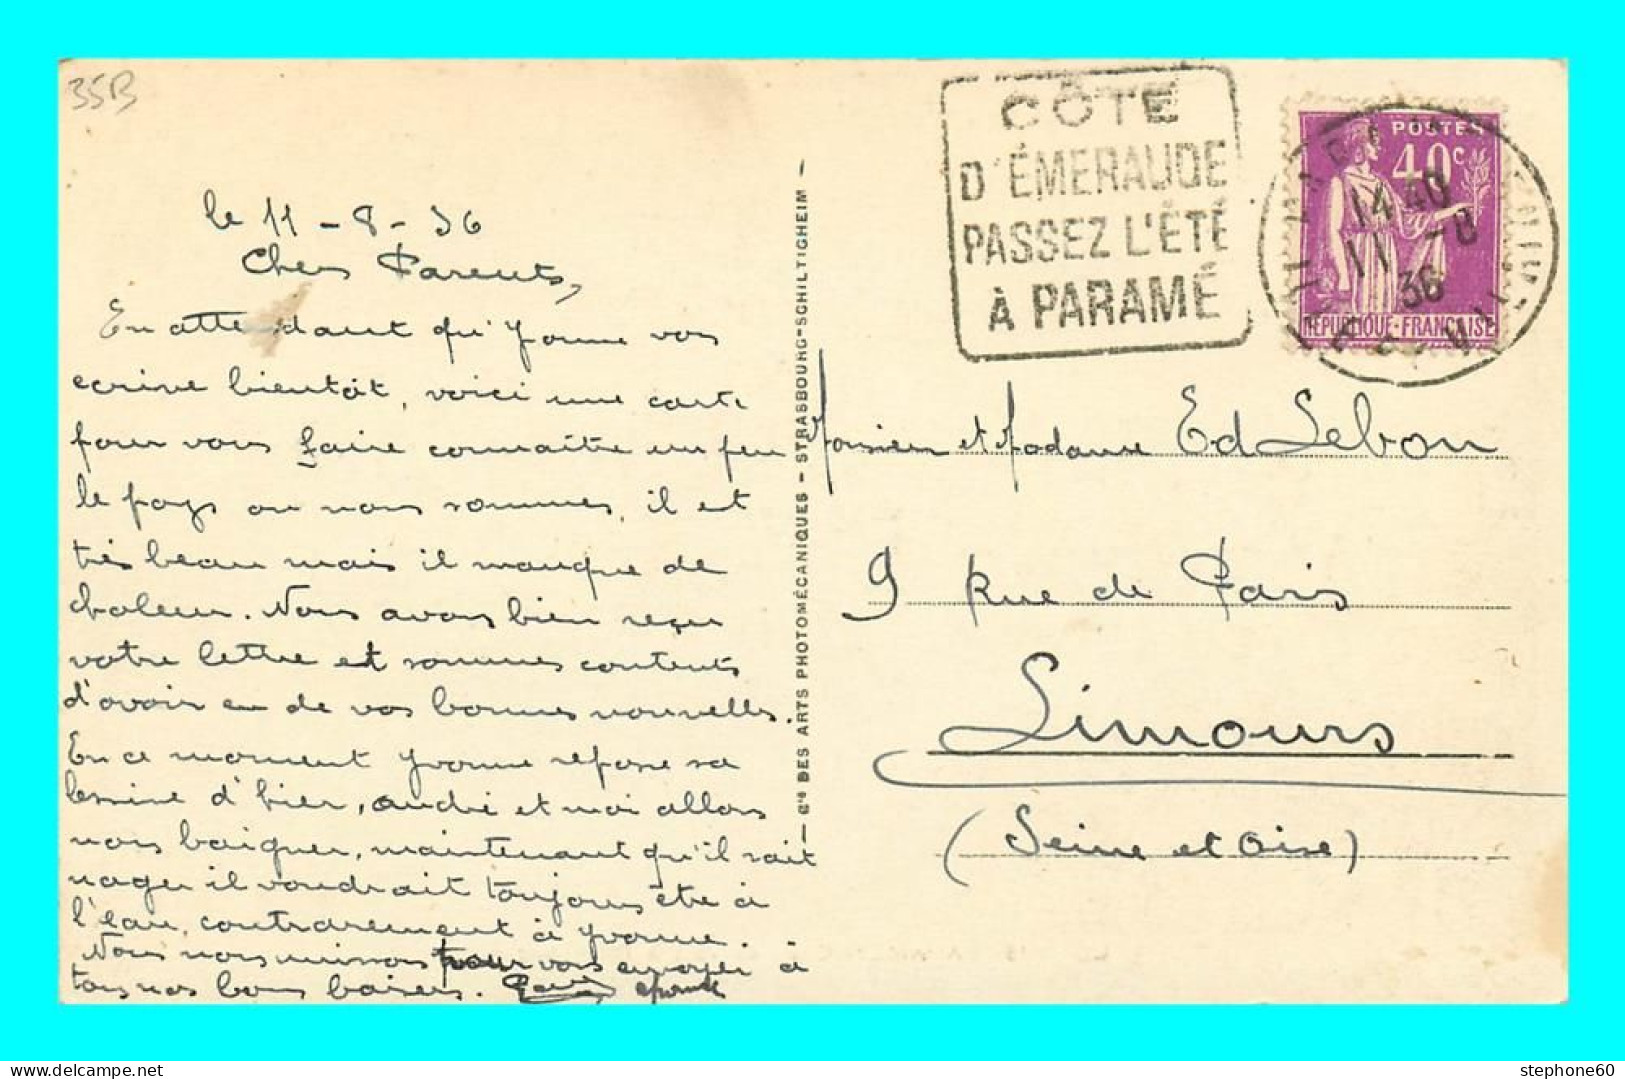 35B
le 11-8-36
Chers Parents,
En attendant qu'Yvonne vous
ecrive bientôt, voici une carte
pour vous faire connaître un peu
le pays ou nous sommes, il est
très beau mais il manque de
chaleur. Nous avons bien reçu
votre lettre et sommes contents
d'avoir eu de vos bonnes nouvelles.
En ce moment Yvonne repose sa
d'hier, andré et moi allons
nous baigner, maintenant qu'il sait
nager il voudrait toujours être à
l'eau, contrairement à Yvonne.
Nous nous unissons pour vous envoyer à
tous nos bons baisers.
Cie DES ARTS PHOTOMÉCANIQUES - STRASBOURG-SCHILTIGHEIM
CÔTE
D'ÉMERAUDE
PASSEZ L'ÉTÉ
À PARAMÉ
POSTES
40c
14 40
11 -8
36
REPUBLIQUE-FRANÇAISE
Monsieur et Madame Ed Lebon
9 Rue de Paris
Limours
(Seine et Oise)
stephone60